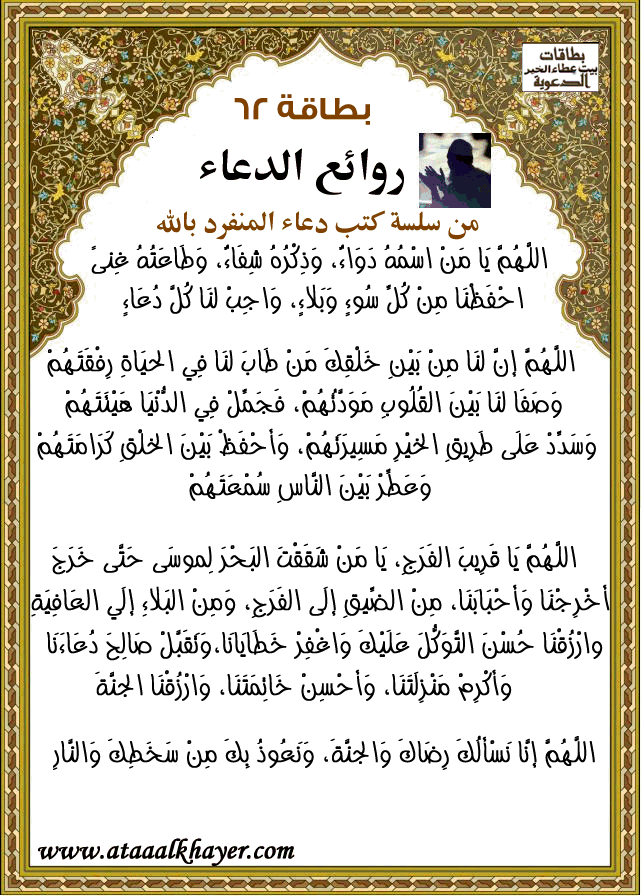 بطاقات
بيت عطاء الخير
الدعوية
بطاقة ٦٢
روائع الدعاء
من سلسة كتب دعاء المنفرد بالله
اللَّهُمَّ يَا مَنْ اسْمُهُ دَوَاءٌ، وَذِكْرُهُ شِفَاءٌ، وَطَاعَتُهُ غِنىً
احْفَظْنَا مِنْ كُلِّ سُوءٍ وَبَلاءٍ، وَاجِبْ لنَا كُلَّ دُعَاءٍ
اللَّهُمَّ إنَّ لنَا مِنْ بَيْنِ خَلْقِكَ مَنْ طَابَ لنَا فِي الحيَاةِ رِفْقَتَهُمْ
وَصَفَا لنَا بَيْنَ القُلُوبِ مَوَدَّتُهُمْ، فَجَمِّلْ فِي الدُّنْيَا هَيْئَتَهُمْ
وَسَدِّدْ عَلَى طَرِيقِ الخيْرِ مَسِيرَتَهُمْ، وَأحْفَظْ بَيْنَ الخلْقِ كَرَامَتَهُمْ
وَعَطِّرْ بَيْنَ النَّاسِ سُمْعَتَهُمْ
اللَّهُمَّ يَا قَرِيبَ الفَرَجِ، يَا مَنْ شَقَقْتَ البَحْرَ لِموسَى حَتَّى خَرَجَ
أخْرِجْنَا وَأحْبَابَنَا، مِنْ الضِّيقِ إلَى الفَرَجِ، وَمِنْ البَلاءِ إلَي العَافِيَةِ
وارْزُقْنَا حُسْنَ التَّوَكُّلَ عَلَيْكَ وَاغْفِرْ خَطَايَانَا،وَتَقَبَّلْ صَالِحَ دُعَاءَنَا
وَأكْرِمْ مَنْزِلَتَنَا، وَأحْسِنْ خَاتِمَتَنَا، وَارْزُقْنَا الجنَّةَ
اللَّهُمَّ إنَّا نَسْألُكَ رِضَاكَ وَالجنَّةَ، وَنَعُوذُ بِكَ مِنْ سَخَطِكَ وَالنَّارِ
www.ataaalkhayer.com